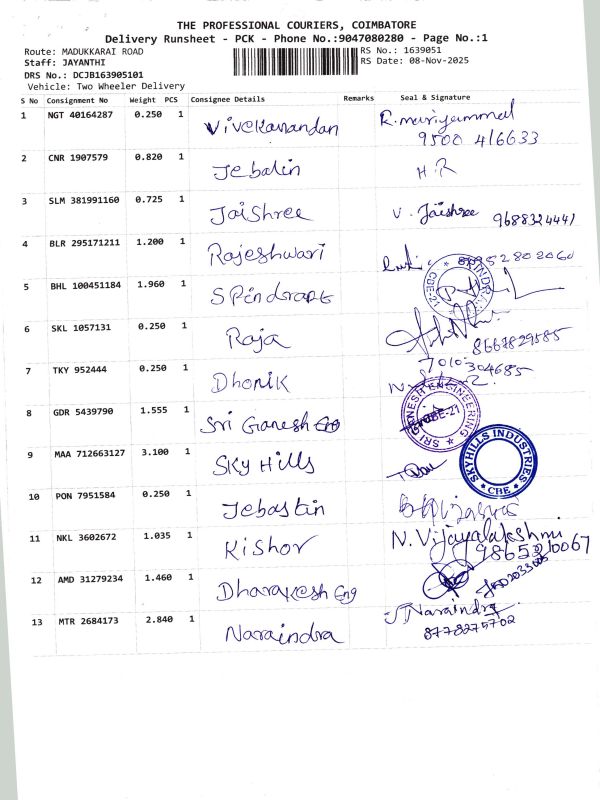 THE PROFESSIONAL COURIERS, COIMBATORE
Delivery Runsheet - PCK - Phone No.:9047080280 - Page No.:1
Route: MADUKKARAI ROAD
RS No.: 1639051
Staff: JAYANTHI
RS Date: 08-Nov-2025
DRS No.: DCJB163905101
Vehicle: Two Wheeler Delivery
S No Consignment No Weight PCS Consignee Details Remarks Seal & Signature
1 NGT 40164287 0.250 1 Vivekanandan R. mariyammal
9500 416633
2 CNR 1907579 0.820 1 Jebalin H.R
3 SLM 381991160 0.725 1 JaiShree V. Jaishree 9688324441
4 BLR 295171211 1.200 1 Rajeshwari
5 BHL 100451184 1.960 1
CBE-21
6 SKL 1057131 0.250 1 Raja
8667829585
7 TKY 952444 0.250 1 Dhonik 7010304685
8 GDR 5439790 1.555 1 Sri Ganesh Eng SRI GANESH ENGINEERING CBE-21
9 MAA 712663127 3.100 1 Sky Hills SKYHILLS INDUSTRIES CBE
10 PON 7951584 0.250 1 Jebastin
11 NKL 3602672 1.035 1 Kishor N. Vijayalakshmi
9865210067
12 AMD 31279234 1.460 1 Dharakesh Eng
13 MTR 2684173 2.840 1 Naraindra Naraindra
8778275702